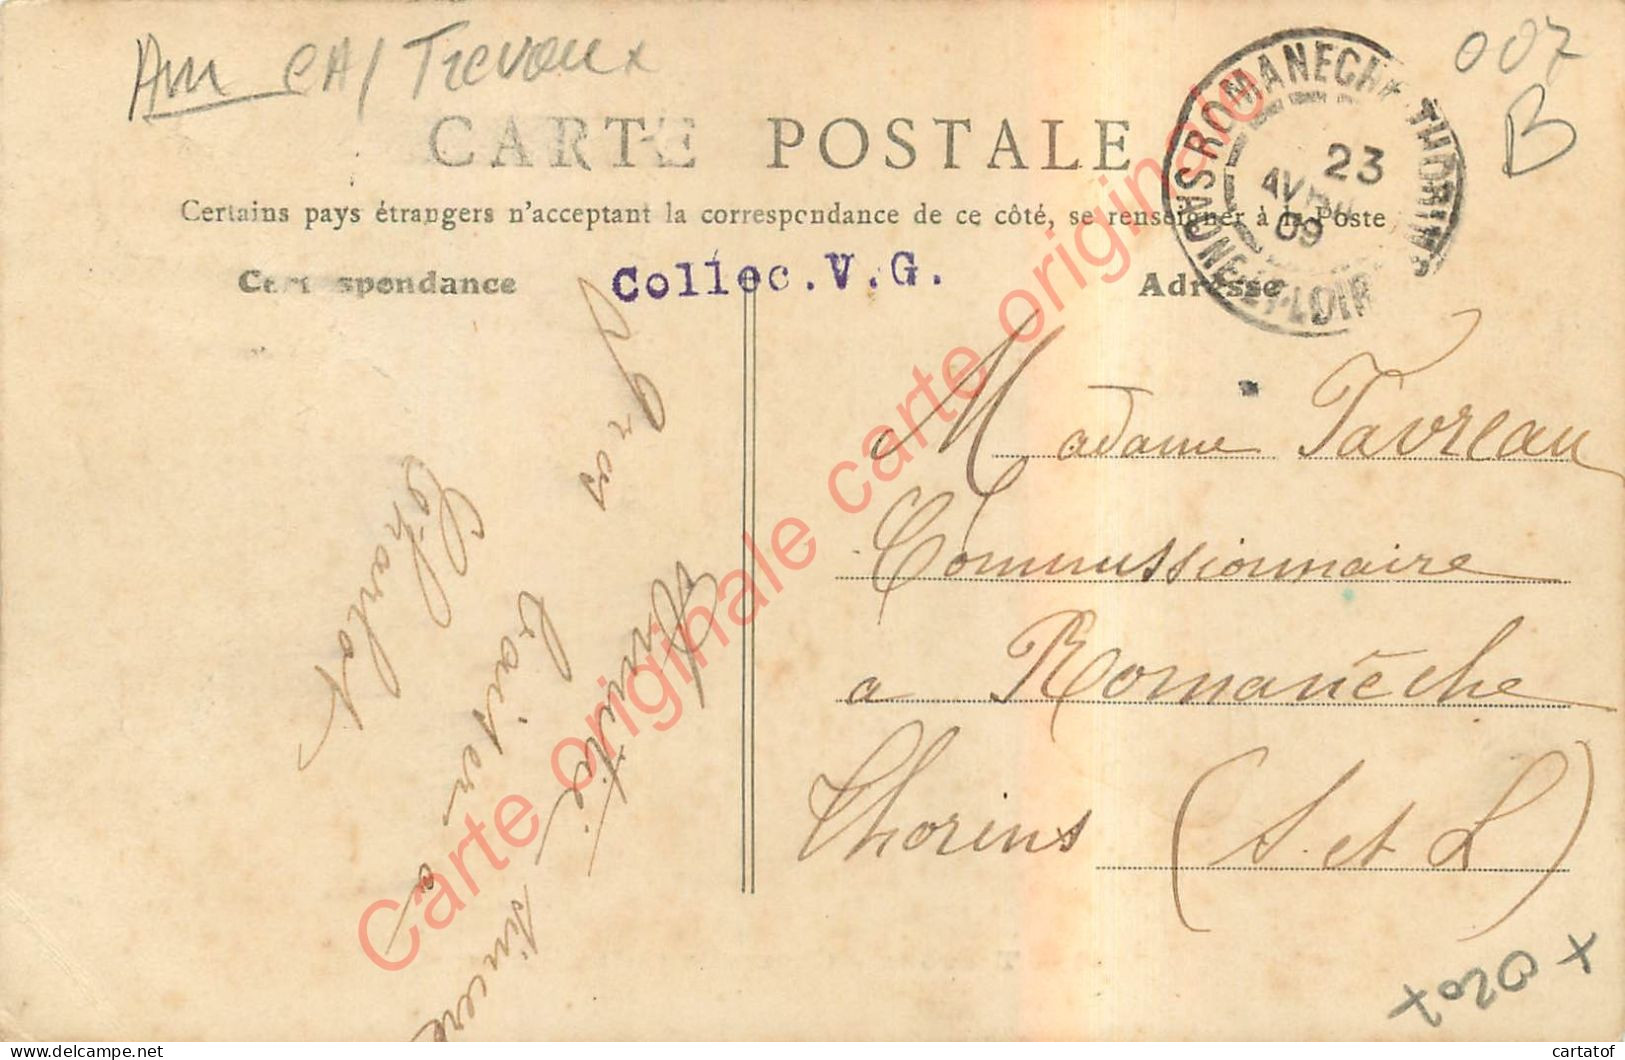 Am CA/ Trevoux
007
B
CARTE POSTALE
Certains pays étrangers n'acceptant la correspondance de ce côté, se renseigner à la Poste
Correspondance
Collec.V.G.
Adresse
ROMANECHE-THORINS
23
AVRIL
09
SAONE-ET-LOIRE
Amitié sincère
baiser a
Charlot
Madame Tavreau
Commissionnaire
a Romanêche
Thorins (S. et L)
Carte originale carte originale carte originale
cartatof